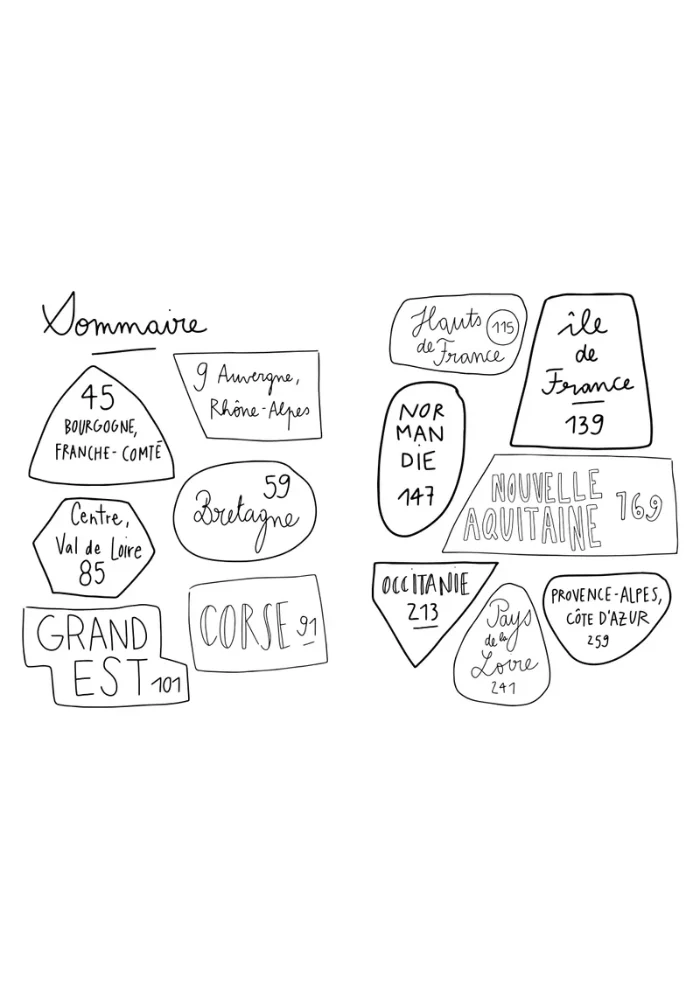 Sommaire
9 Auvergne,
Rhône-Alpes
45
BOURGOGNE,
FRANCHE-COMTÉ
59
Bretagne
Centre,
Val de Loire
85
CORSE 91
GRAND
EST 101
Hauts
de France 115
île
de
France
139
NOR
MAN
DIE
147
NOUVELLE
AQUITAINE 169
OCCITANIE
213
Pays
de la
Loire
241
PROVENCE-ALPES,
CÔTE D'AZUR
259